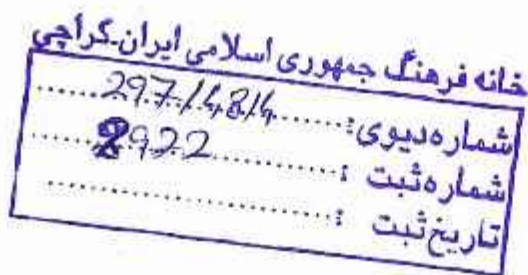 خانه فرهنگ جمهوری اسلامی ایران.کراچی
شماره دیوی: 297/4814
شماره ثبت : 8922
تاریخ ثبت :